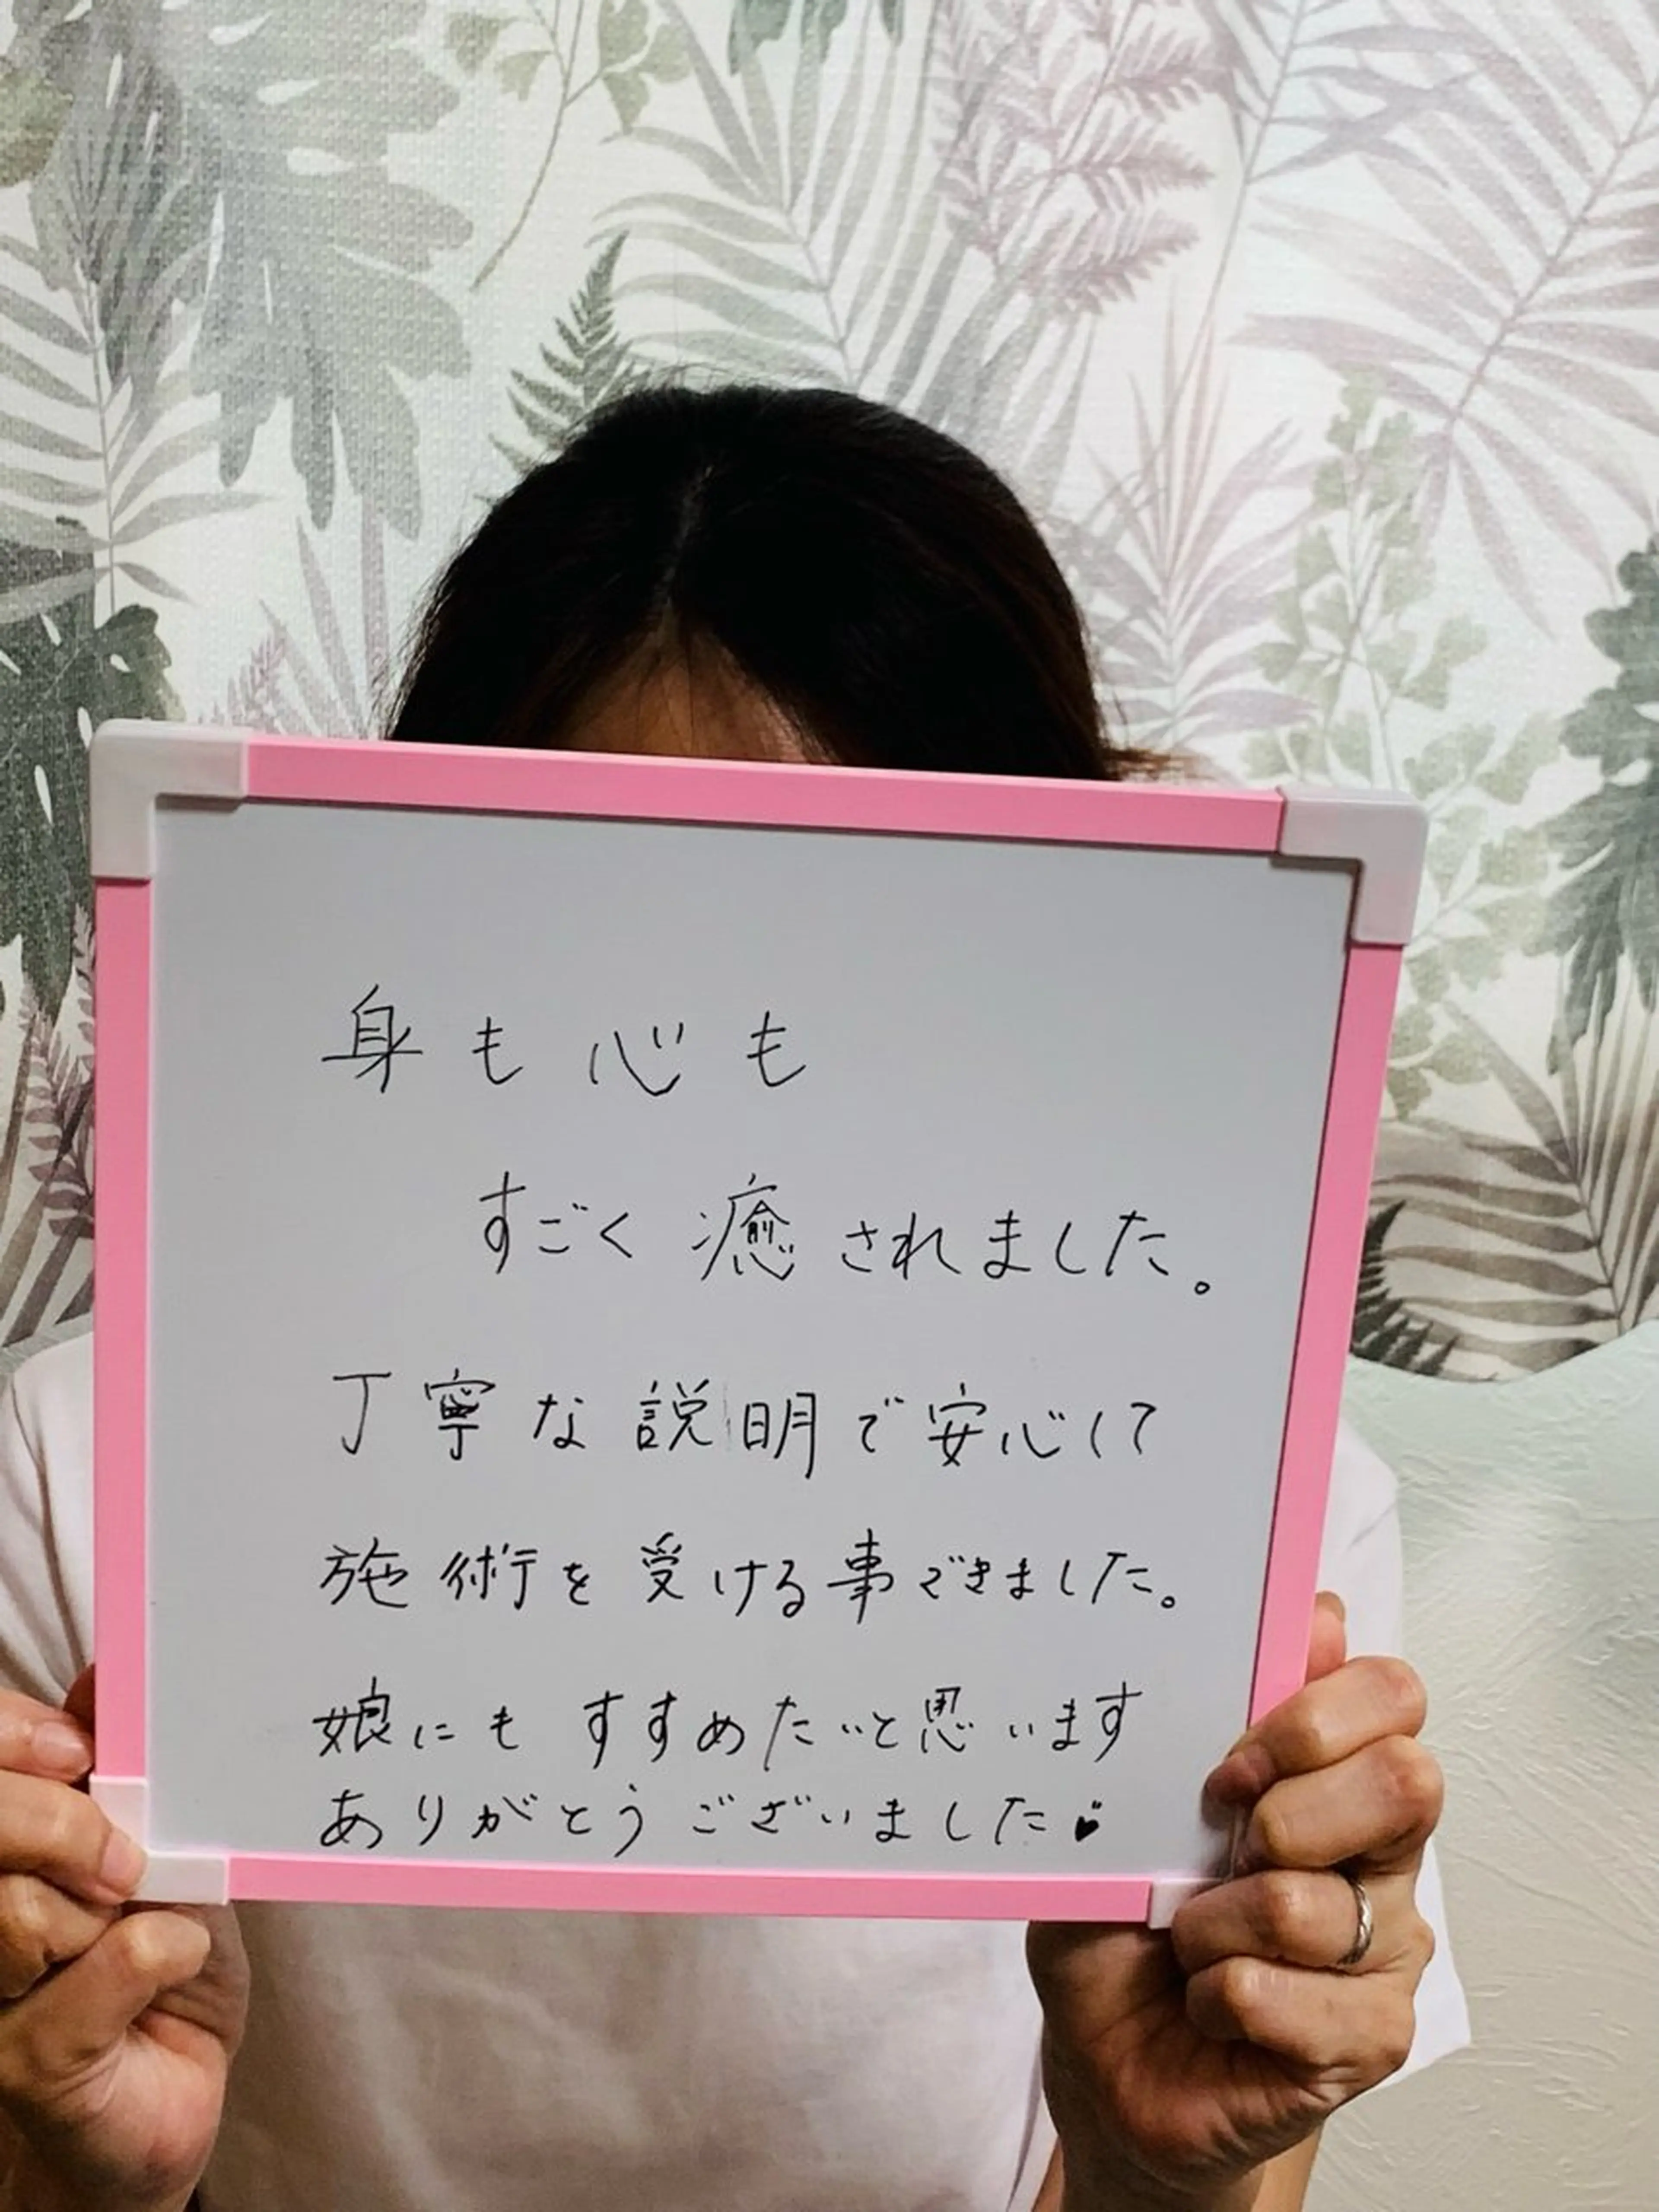 身も心も
すごく癒されました。
丁寧な説明で安心して
施術を受ける事できました。
娘にもすすめたいと思います
ありがとうございました♥